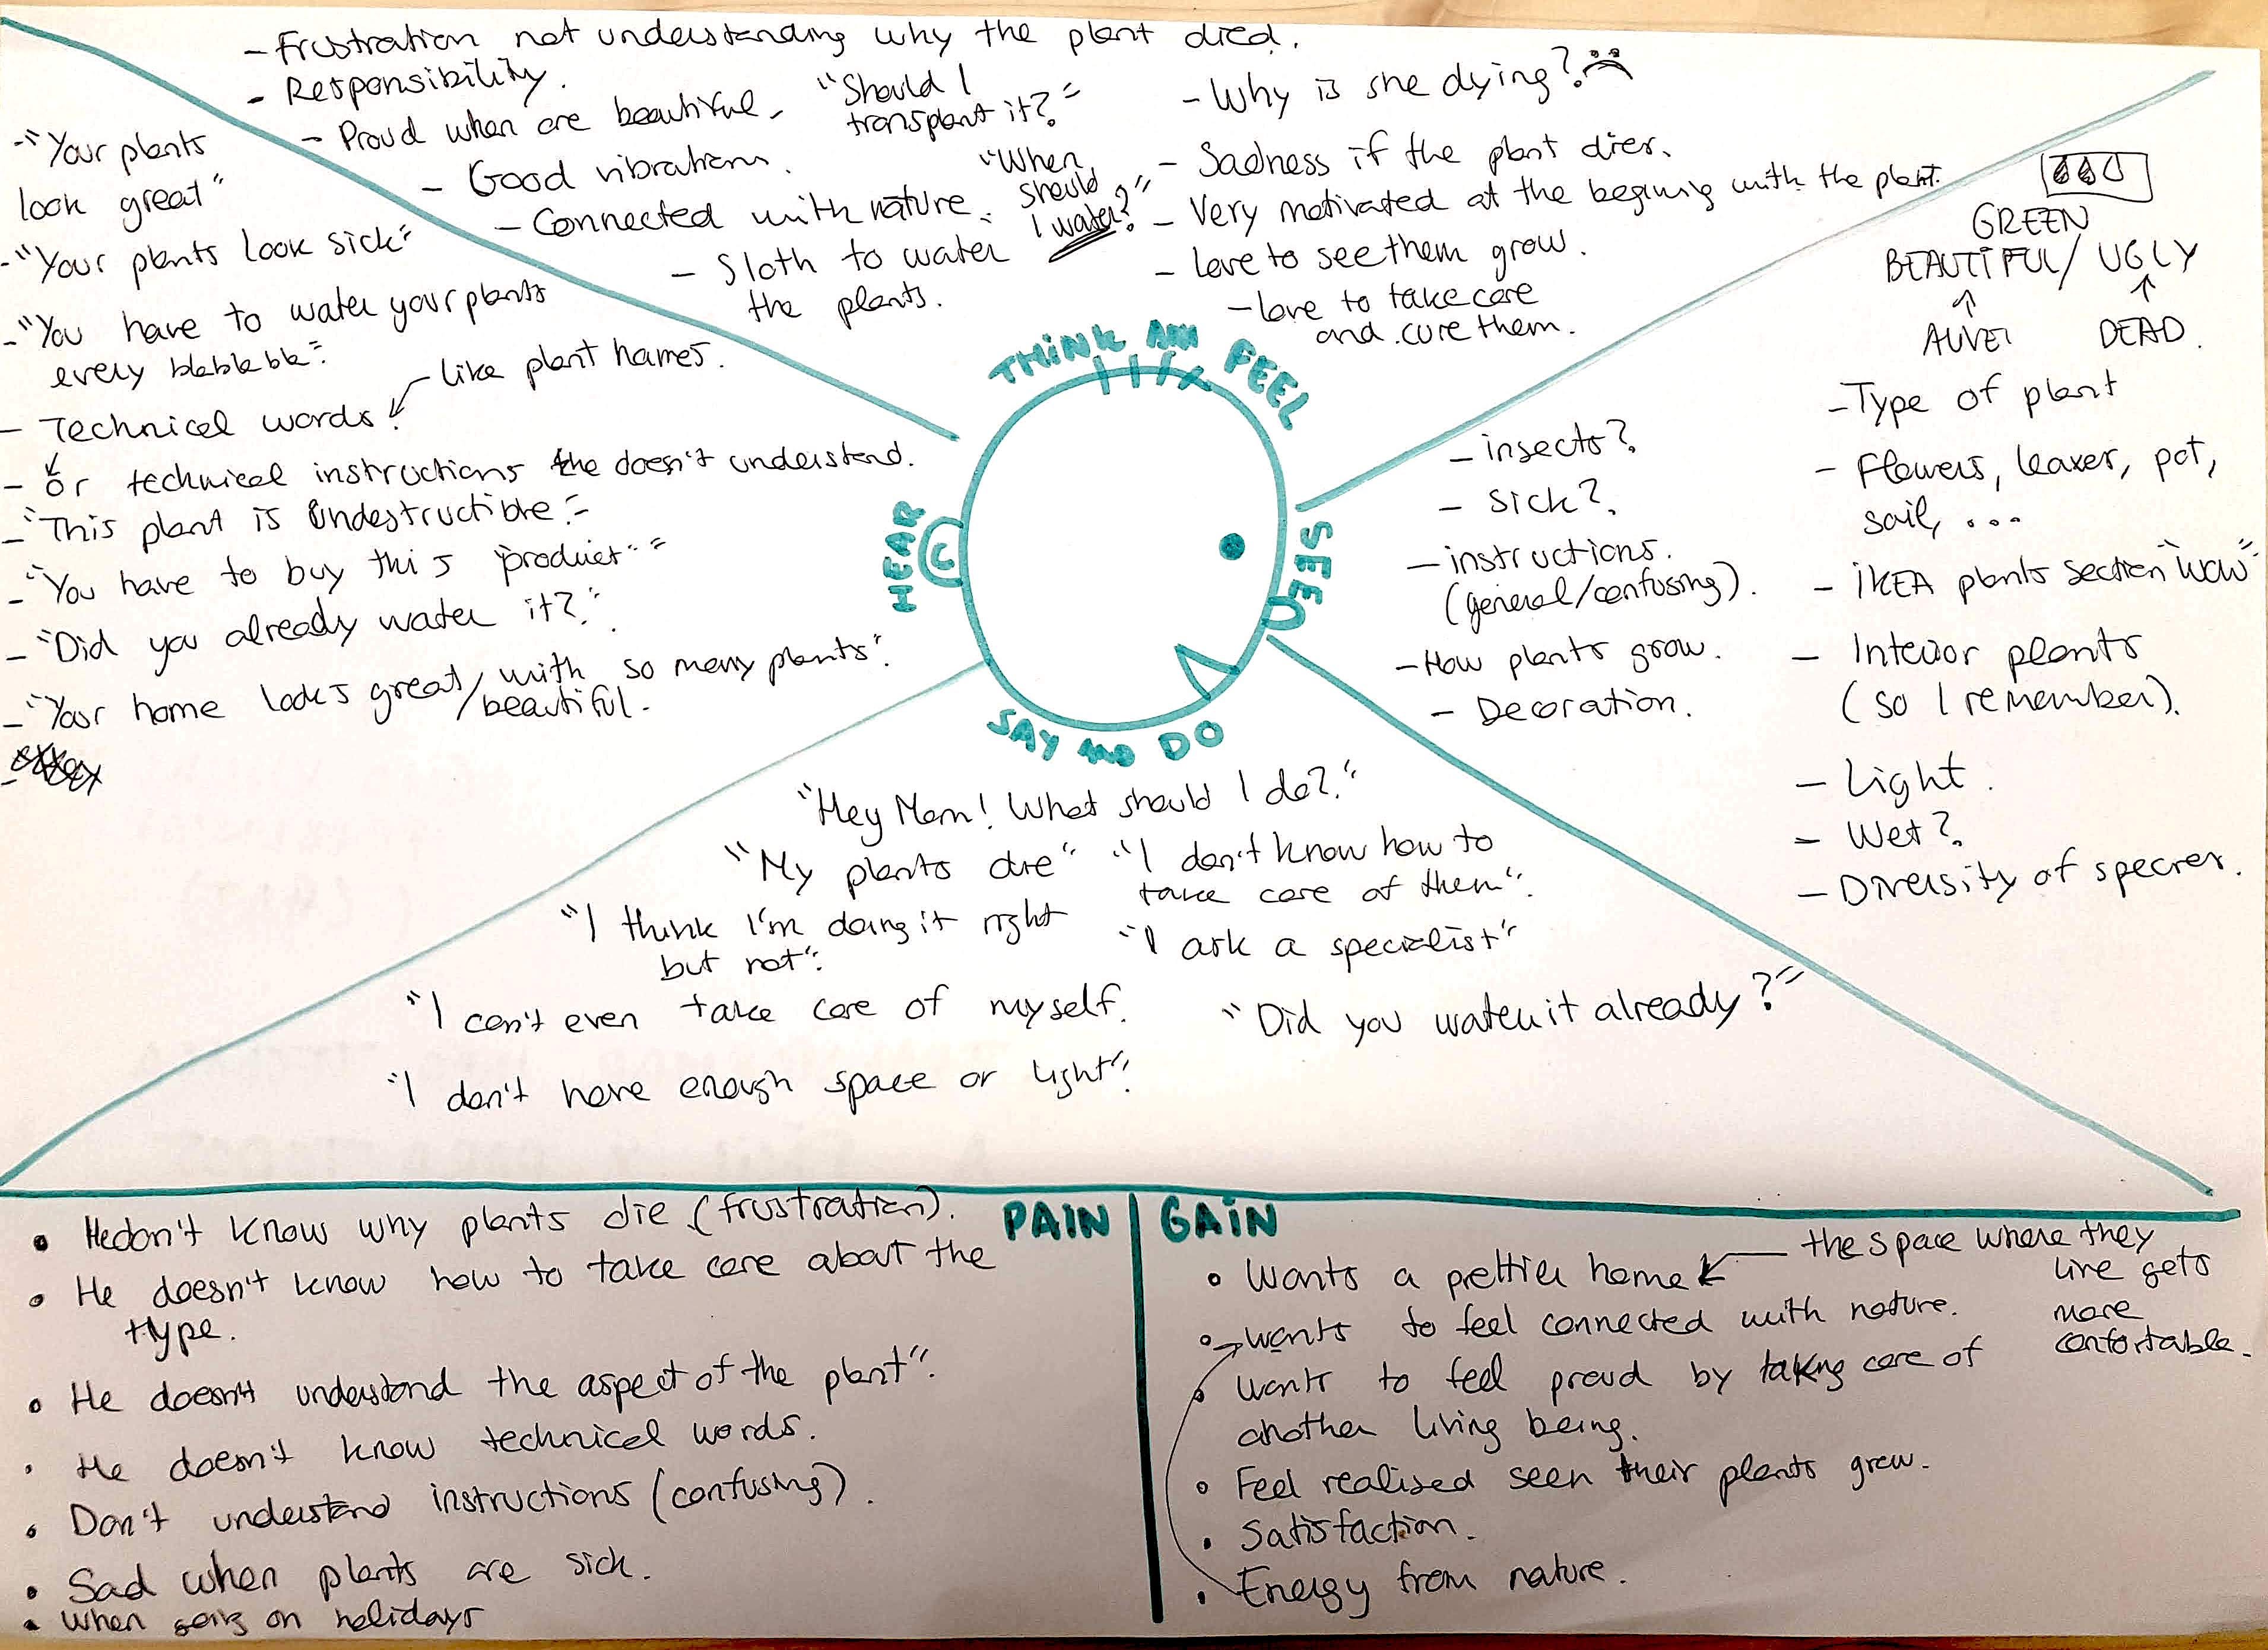 - Frustration not understanding why the plant died.
- Responsibility.
- Proud when are beautiful.
- Good vibrations.
- Connected with nature.
- Sloth to water
the plants.
"Should I
transplant it?"
"When
should
I water?"
- Why is she dying?
- Sadness if the plant dies.
- Very motivated at the begining with the plant.
- Love to see them grow.
- love to take care
and cure them.
THINK AND FEEL
- "Your plants
look great"
- "Your plants look sick"
- "You have to water your plants
every blablabla".
- Technical words.
like plant names.
- or technical instructions he doesn't understand.
- "This plant is undestructible".
- "You have to buy this product"
- "Did you already water it?".
- "Your home looks great/ with so many plants".
beautiful.
HEAR
SEE
- insects?
- Sick?
- instructions.
(general/confusing).
- How plants grow.
- Decoration.
GREEN
BEAUTIFUL/ UGLY
ALIVE! DEAD.
- Type of plant
- Flowers, leaves, pot,
soil, ...
- IKEA plants section "wow"
- Interior plants
(so I remember).
- Light.
- Wet?
- Diversity of species.
SAY AND DO
"Hey Mom! What should I do?"
"My plants die" "I don't know how to
take care of them".
"I think I'm doing it right
but not".
"I ask a specialist"
"I can't even take care of myself.
"Did you water it already?"
"I don't have enough space or light".
PAIN
• He don't know why plants die (frustration).
• He doesn't know how to take care about the
type.
• He doesn't understand the aspect of the plant".
• He doesn't know technical words.
• Don't understand instructions (confusing).
• Sad when plants are sick.
• When going on holidays
GAIN
• Wants a prettier home
the space where they
live gets
more
confortable.
• wants to feel connected with nature.
• Wants to feel proud by taking care of
another living being.
• Feel realised seen their plants grew.
• Satisfaction.
• Energy from nature.